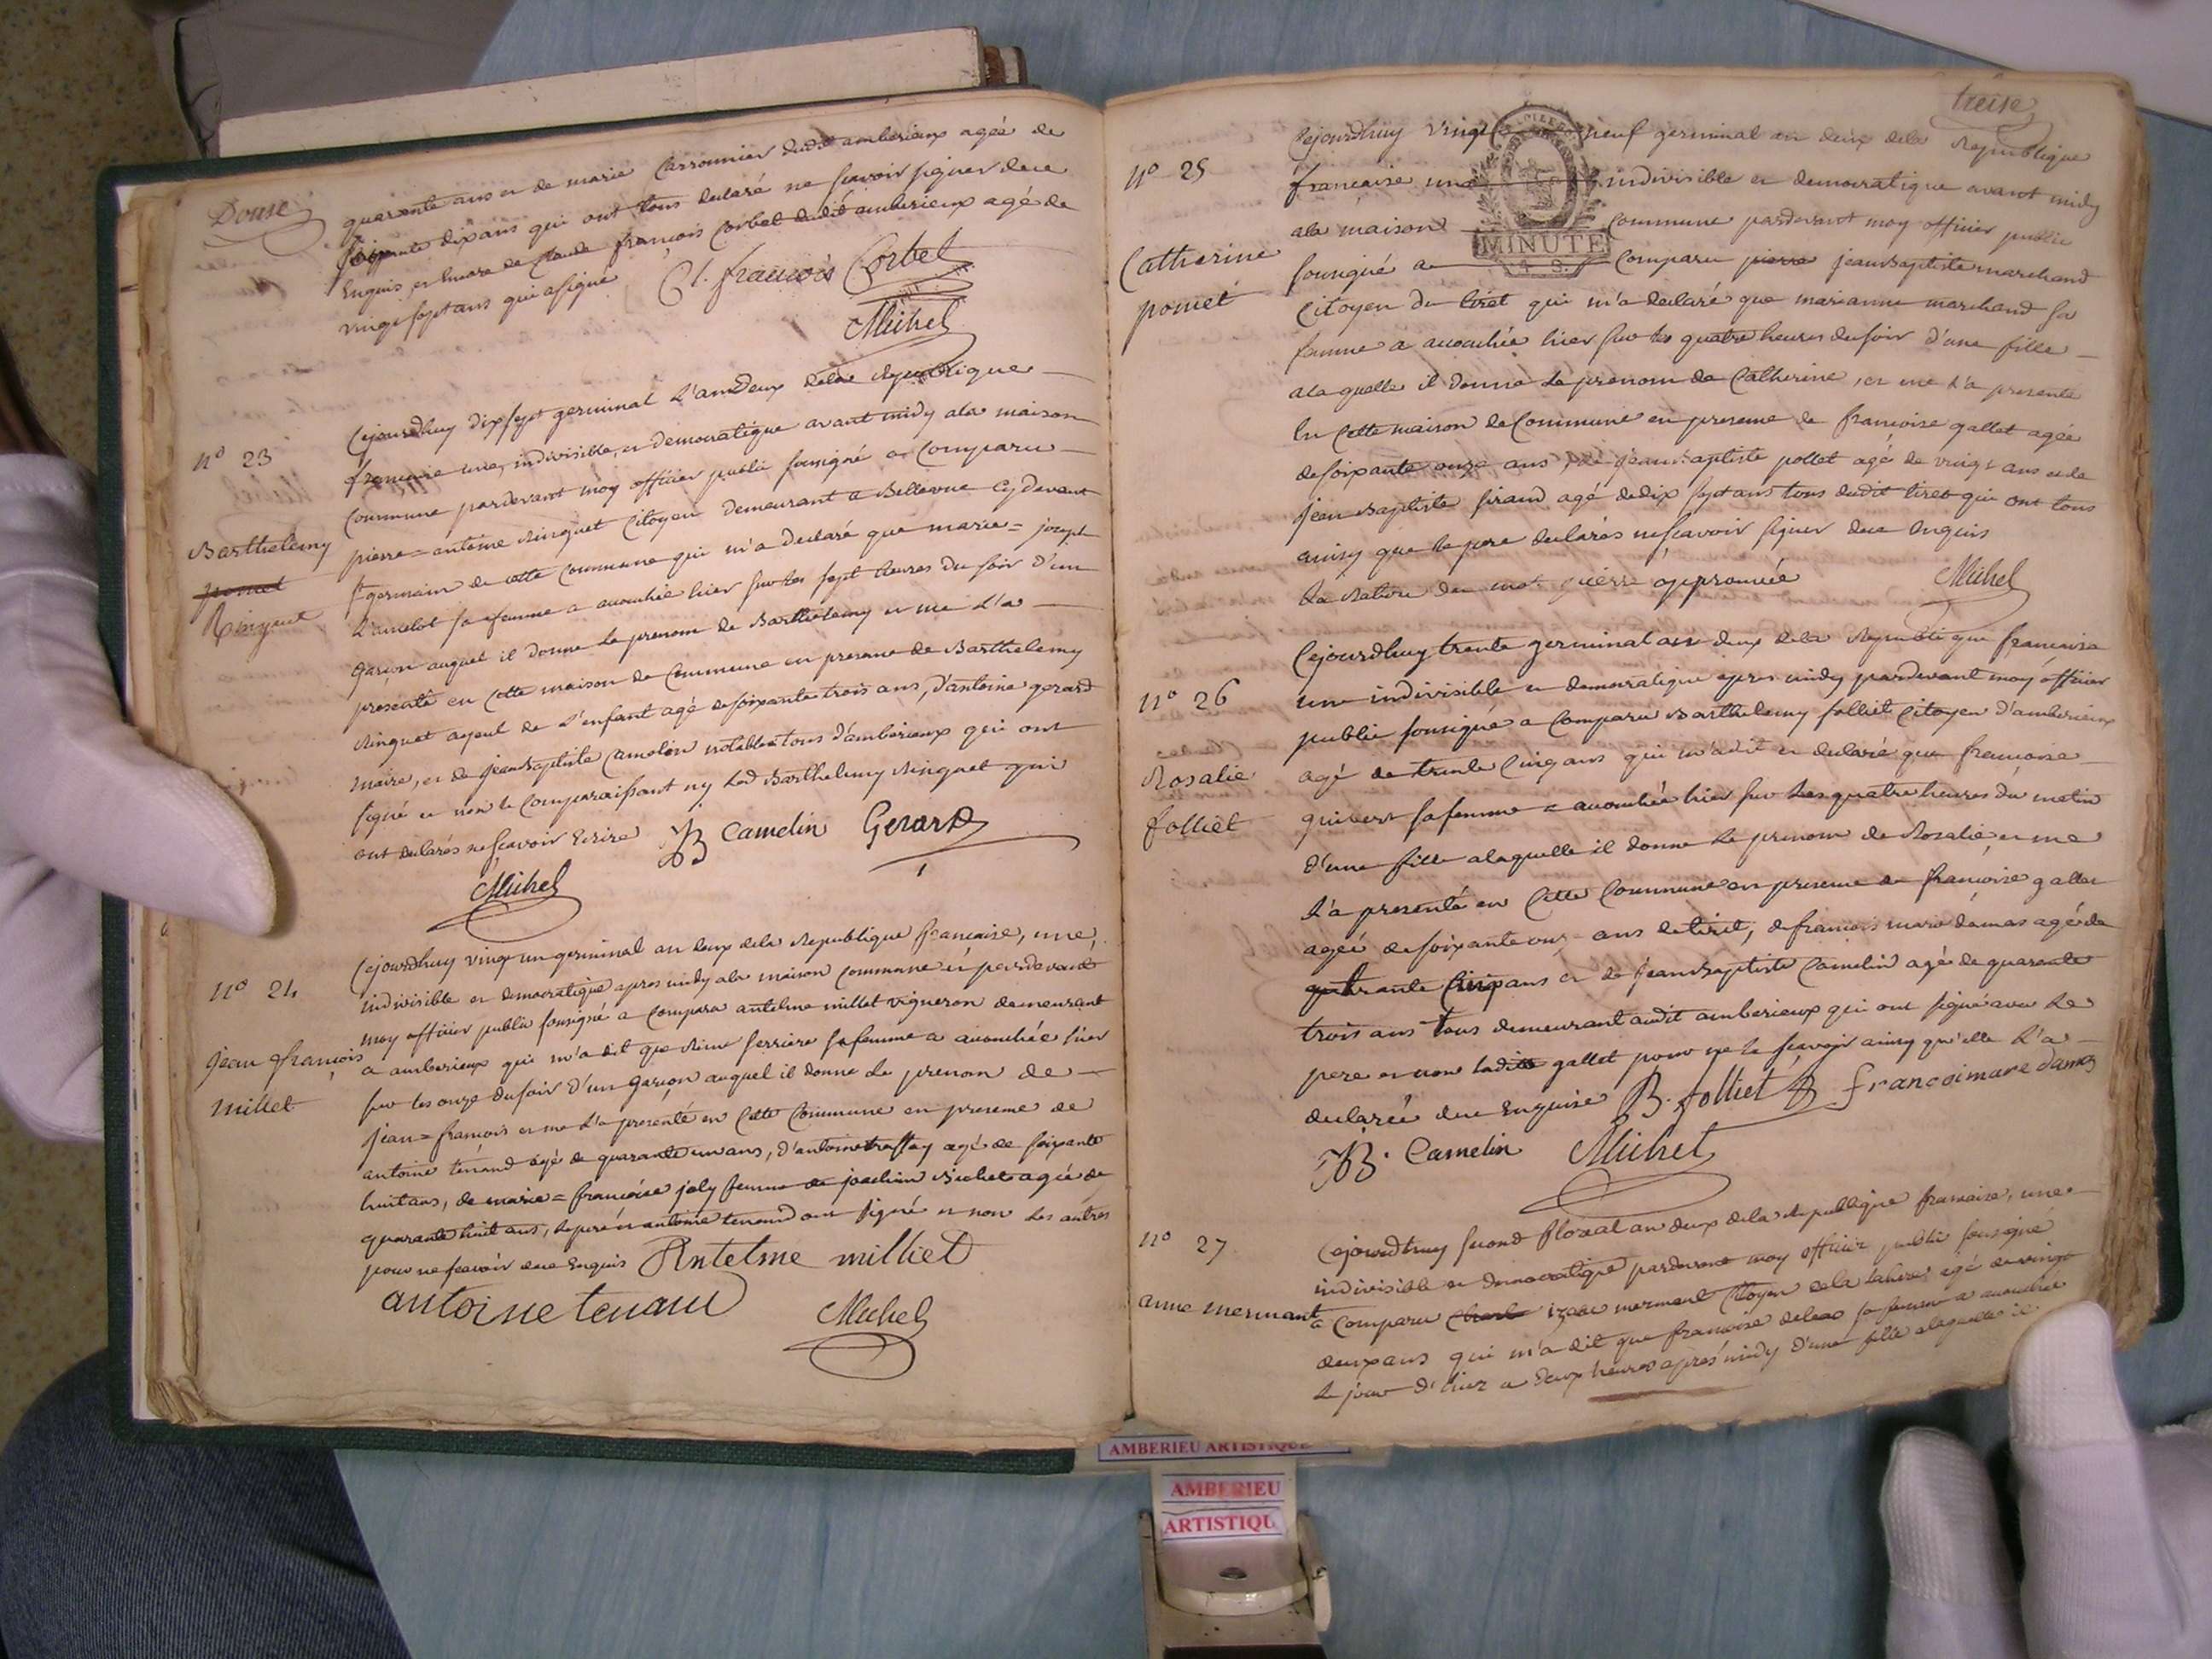 Douse
quarante ans et de marie Carronnier dudit amberieux agée de
soixante dix ans qui ont tous declaré ne scavoir signer de ce
Enquis et Encore de Claude françois Corbet dudit amberieux agé de
vingt sept ans qui a signé Cl. françois Corbet
Michel
n° 23
Barthelemy
pomet
Ringuet
Cejourdhuy dix sept germinal L'an deux dela Republique
francaise une, indivisible, et democratique avant midy ala maison
Commune pardevant moy officier public sousigné a Comparu
pierre = antoine Ringuet Citoyen demeurant a Bellevue Cydevant
St germain de cette Commune qui m'a declaré que marie = joseph
sa femme a accouchée hier sur les sept heures du soir d'un
garcon auquel il donne le prenom de Barthelemy et me L'a
presenté en Cette maison de Commune en presence de Barthelemy
Ringuet ayeul de L'enfant agé de soixante trois ans, d'antoine gerard
maire, et de jean Baptiste Camelin notable tous d'amberieux qui ont
signé et non le Comparaissant ny Led Barthelemy Ringuet qui
ont declarés ne scavoir Ecrire JB Camelin Gerard
Michel
n° 24
jean françois
millet
Cejourdhuy vingt un germinal an deux dela Republique francaise, une,
indivisible et democratique apres midy ala maison Commune et pardevant
moy officier public sousigné a Comparu antelme millet vigneron demeurant
a amberieux qui m'a dit que Reine ferriere sa femme a accouchée hier
sur les onze du soir d'un garcon auquel il donne Le prenom de
jean = francois et me L'a presenté en Cette Commune en presence de
antoine tenand agé de quarante un ans, d'antoine agé de soixante
huit ans, de marie = francoise joly femme de joachim Bichet agée de
quarante huit ans, le pere et antoine tenand ont signé et non les autres
pour ne scavoir de ce Enquis Antelme milliet
antoine tenand Michel
treise
n° 25
Catherine
pomet
Cejourdhuy vingt neuf germinal an deux dela Republique
francaise une indivisible et democratique avant midy
MINUTE
ala maison Commune pardevant moy officier public
sousigné a Comparu pierre jean Baptiste marchand
Citoyen du tiret qui m'a declaré que marianne marchand sa
femme a accouchée hier sur les quatre heures du soir d'une fille
ala quelle il donne le prenom de Catherine, et me L'a presenté
En Cette maison de Commune en presence de francoise gallet agée
de soixante onze ans, de jean Baptiste pollet agé de vingt ans et de
jean Baptiste siraud agé de dix sept ans tous dudit tiret qui ont tous
ainsy que le pere declarés ne scavoir signer de ce Enquis
La Rature du mot pierre approuvée Michel
n° 26
Rosalie
folliet
Cejourdhuy trente germinal an deux dela Republique francaise
une indivisible et democratique apres midy pardevant moy officier
public sousigné a Comparu Barthelemy folliet Citoyen d'amberieux
agé de trente Cinq ans qui m'a dit et declaré que francoise
sa femme a accouchée hier sur les quatre heures du matin
d'une fille alaquelle il donne le prenom de Rosalie, et me
L'a presenté en Cette Commune en presence de francoise gallet
agée de soixante onze ans de tiret, de francois marie damas agé de
quarante Cinq ans et de jean Baptiste Camelin agé de quarante
trois ans tous demeurant audit amberieux qui ont signé avec Le
pere et non ladite gallet pour ne le scavoir ainsy qu'elle L'a
declarée de ce Enquise B. folliet françoimare damas
JB. Camelin Michel
n° 27
anne mermant
Cejourdhuy second floréal an deux dela Republique francaise, une
indivisible et democratique pardevant moy officier public sousigné
a Comparu mermant Citoyen agé de vingt
deux ans qui m'a dit que francoise sa femme a accouchée
le jour d'hier a deux heures apres midy d'une fille alaquelle il
AMBERIEU ARTISTIQUE
AMBERIEU
ARTISTIQU